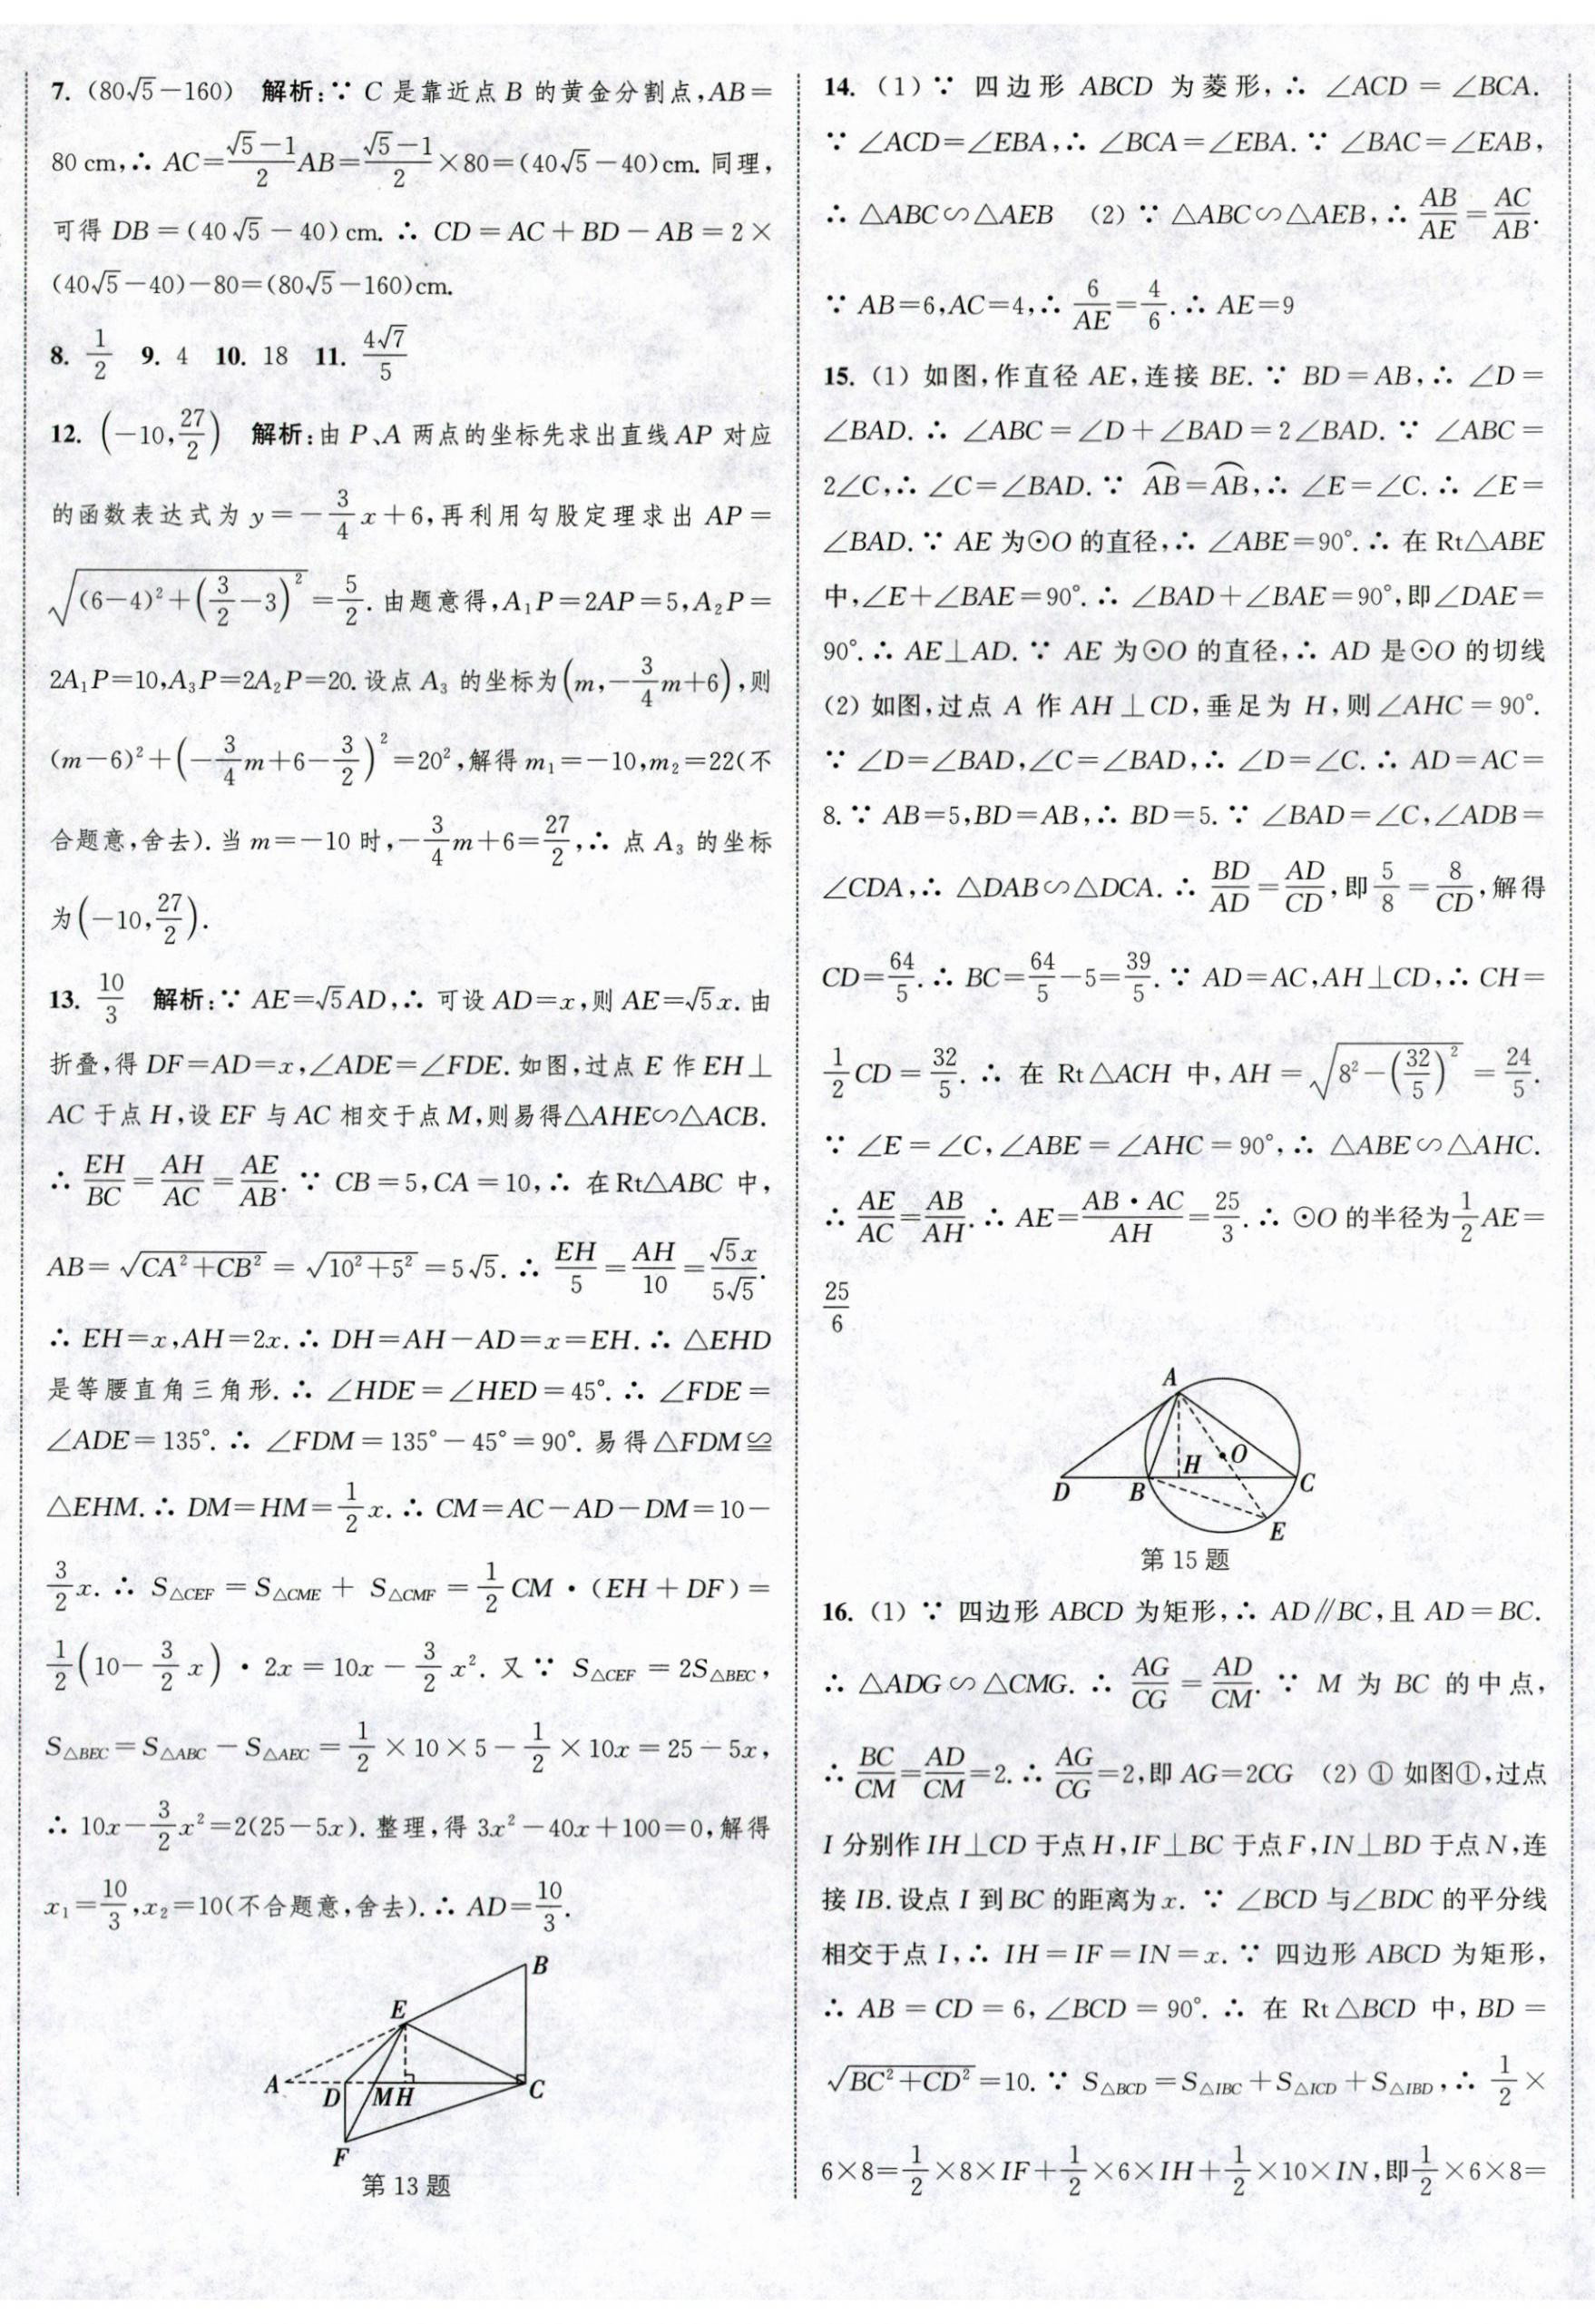 7. (80√5－160)　解析:∵ C 是靠近点 B 的黄金分割点,AB＝
80 cm,∴ AC＝(√5－1)/2 AB＝(√5－1)/2×80＝(40√5－40)cm. 同理,
可得 DB＝(40√5－40)cm. ∴ CD＝AC＋BD－AB＝2×
(40√5－40)－80＝(80√5－160)cm.
8. 1/2　9. 4　10. 18　11. 4√7/5
12. (－10,27/2)　解析:由 P、A 两点的坐标先求出直线 AP 对应
的函数表达式为 y＝－3/4 x＋6,再利用勾股定理求出 AP＝
√((6－4)²＋(3/2－3)²)＝5/2. 由题意得,A₁P＝2AP＝5,A₂P＝
2A₁P＝10,A₃P＝2A₂P＝20. 设点 A₃ 的坐标为(m,－3/4 m＋6),则
(m－6)²＋(－3/4 m＋6－3/2)²＝20²,解得 m₁＝－10,m₂＝22(不
合题意,舍去). 当 m＝－10 时,－3/4 m＋6＝27/2,∴ 点 A₃ 的坐标
为(－10,27/2).
13. 10/3　解析:∵ AE＝√5AD,∴ 可设 AD＝x,则 AE＝√5x. 由
折叠,得 DF＝AD＝x,∠ADE＝∠FDE. 如图,过点 E 作 EH⊥
AC 于点 H,设 EF 与 AC 相交于点 M,则易得△AHE∽△ACB.
∴ EH/BC＝AH/AC＝AE/AB. ∵ CB＝5,CA＝10,∴ 在Rt△ABC 中,
AB＝√(CA²＋CB²)＝√(10²＋5²)＝5√5. ∴ EH/5＝AH/10＝√5x/5√5.
∴ EH＝x,AH＝2x. ∴ DH＝AH－AD＝x＝EH. ∴ △EHD
是等腰直角三角形. ∴ ∠HDE＝∠HED＝45°. ∴ ∠FDE＝
∠ADE＝135°. ∴ ∠FDM＝135°－45°＝90°. 易得△FDM≌
△EHM. ∴ DM＝HM＝1/2 x. ∴ CM＝AC－AD－DM＝10－
3/2 x. ∴ S△CEF＝S△CME＋S△CMF＝1/2 CM·(EH＋DF)＝
1/2(10－3/2 x)·2x＝10x－3/2 x². 又∵ S△CEF＝2S△BEC,
S△BEC＝S△ABC－S△AEC＝1/2×10×5－1/2×10x＝25－5x,
∴ 10x－3/2 x²＝2(25－5x). 整理,得 3x²－40x＋100＝0,解得
x₁＝10/3,x₂＝10(不合题意,舍去). ∴ AD＝10/3.
B
E
A
D
M
H
C
F
第 13 题
14. (1) ∵ 四边形 ABCD 为菱形,∴ ∠ACD＝∠BCA.
∵ ∠ACD＝∠EBA,∴ ∠BCA＝∠EBA. ∵ ∠BAC＝∠EAB,
∴ △ABC∽△AEB　(2) ∵ △ABC∽△AEB,∴ AB/AE＝AC/AB.
∵ AB＝6,AC＝4,∴ 6/AE＝4/6. ∴ AE＝9
15. (1) 如图,作直径 AE,连接 BE. ∵ BD＝AB,∴ ∠D＝
∠BAD. ∴ ∠ABC＝∠D＋∠BAD＝2∠BAD. ∵ ∠ABC＝
2∠C,∴ ∠C＝∠BAD. ∵ A͡B＝A͡B,∴ ∠E＝∠C. ∴ ∠E＝
∠BAD. ∵ AE 为⊙O 的直径,∴ ∠ABE＝90°. ∴ 在 Rt△ABE
中,∠E＋∠BAE＝90°. ∴ ∠BAD＋∠BAE＝90°,即∠DAE＝
90°. ∴ AE⊥AD. ∵ AE 为⊙O 的直径,∴ AD 是⊙O 的切线
(2) 如图,过点 A 作 AH⊥CD,垂足为 H,则∠AHC＝90°.
∵ ∠D＝∠BAD,∠C＝∠BAD,∴ ∠D＝∠C. ∴ AD＝AC＝
8. ∵ AB＝5,BD＝AB,∴ BD＝5. ∵ ∠BAD＝∠C,∠ADB＝
∠CDA,∴ △DAB∽△DCA. ∴ BD/AD＝AD/CD,即 5/8＝8/CD,解得
CD＝64/5. ∴ BC＝64/5－5＝39/5. ∵ AD＝AC,AH⊥CD,∴ CH＝
1/2 CD＝32/5. ∴ 在 Rt△ACH 中,AH＝√(8²－(32/5)²)＝24/5.
∵ ∠E＝∠C,∠ABE＝∠AHC＝90°,∴ △ABE∽△AHC.
∴ AE/AC＝AB/AH. ∴ AE＝AB·AC/AH＝25/3. ∴ ⊙O 的半径为 1/2 AE＝
25/6
A
H
O
D
B
C
E
第 15 题
16. (1) ∵ 四边形 ABCD 为矩形,∴ AD∥BC,且 AD＝BC.
∴ △ADG∽△CMG. ∴ AG/CG＝AD/CM. ∵ M 为 BC 的中点,
∴ BC/CM＝AD/CM＝2. ∴ AG/CG＝2,即 AG＝2CG　(2) ① 如图①,过点
I 分别作 IH⊥CD 于点 H,IF⊥BC 于点 F,IN⊥BD 于点 N,连
接 IB. 设点 I 到 BC 的距离为 x. ∵ ∠BCD 与∠BDC 的平分线
相交于点 I,∴ IH＝IF＝IN＝x. ∵ 四边形 ABCD 为矩形,
∴ AB＝CD＝6,∠BCD＝90°. ∴ 在 Rt△BCD 中,BD＝
√(BC²＋CD²)＝10. ∵ S△BCD＝S△IBC＋S△ICD＋S△IBD,∴ 1/2×
6×8＝1/2×8×IF＋1/2×6×IH＋1/2×10×IN,即 1/2×6×8＝